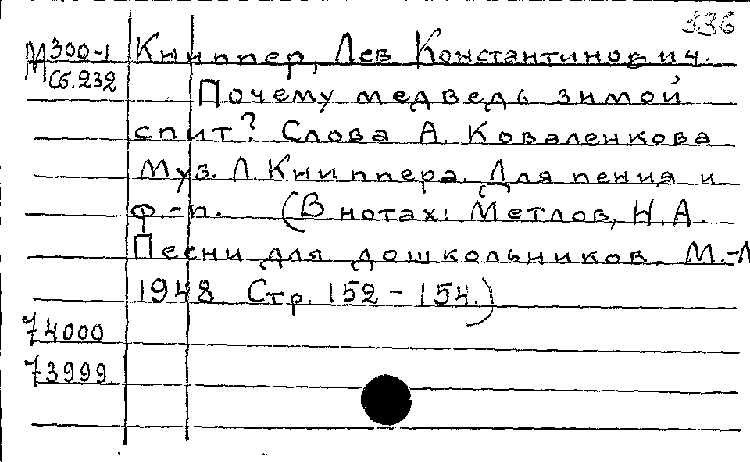 336
М 300-1 Книппер, Лев Константинович.
Сб. 232
Почему медведь зимой
спит? Слова А. Коваленкова
Муз. Л. Книппера. Для пения и
ф.-п. (В нотах: Метлов, Н. А.
Песни для дошкольников. М.-Л
1948 Стр. 152-154.)
74000
73999